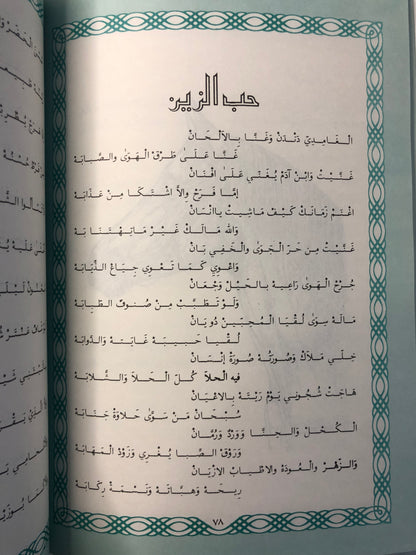 حب الزين
الغامدي دندن وغنا بالالحان
غنا على طرق الهوى والصبابه
غنيت وابن آدم يغني على افنان
إما فرح والا اشتكا من عذابه
اغنم زمانك كيف ماشيت ياانسان
والله مالك غير ماتهتنا به
غنيت من حر الجوى والخفي بان
واعوي كما تعوي جياع الذيابه
جرح الهوى راعيه بالحيل وجعان
ولو تطبب من صنوف الطبابه
ماله سوى لقيا المحبين ذويان
لقيا حبيبه غايته والدوابه
خلي ملاك وصورته صورة إنسان
فيه الحلا كل الحلا والتلابه
هاجت شجوني يوم ريته بالاعيان
سبحان من سوى حلاوة جنابه
الكحل والحنا وورد ورمان
وروق الصبا يغري وزود المهابه
والزهر والموده والاطياب الازيان
ريحه وهباته ونسمة ركابه
٧٨